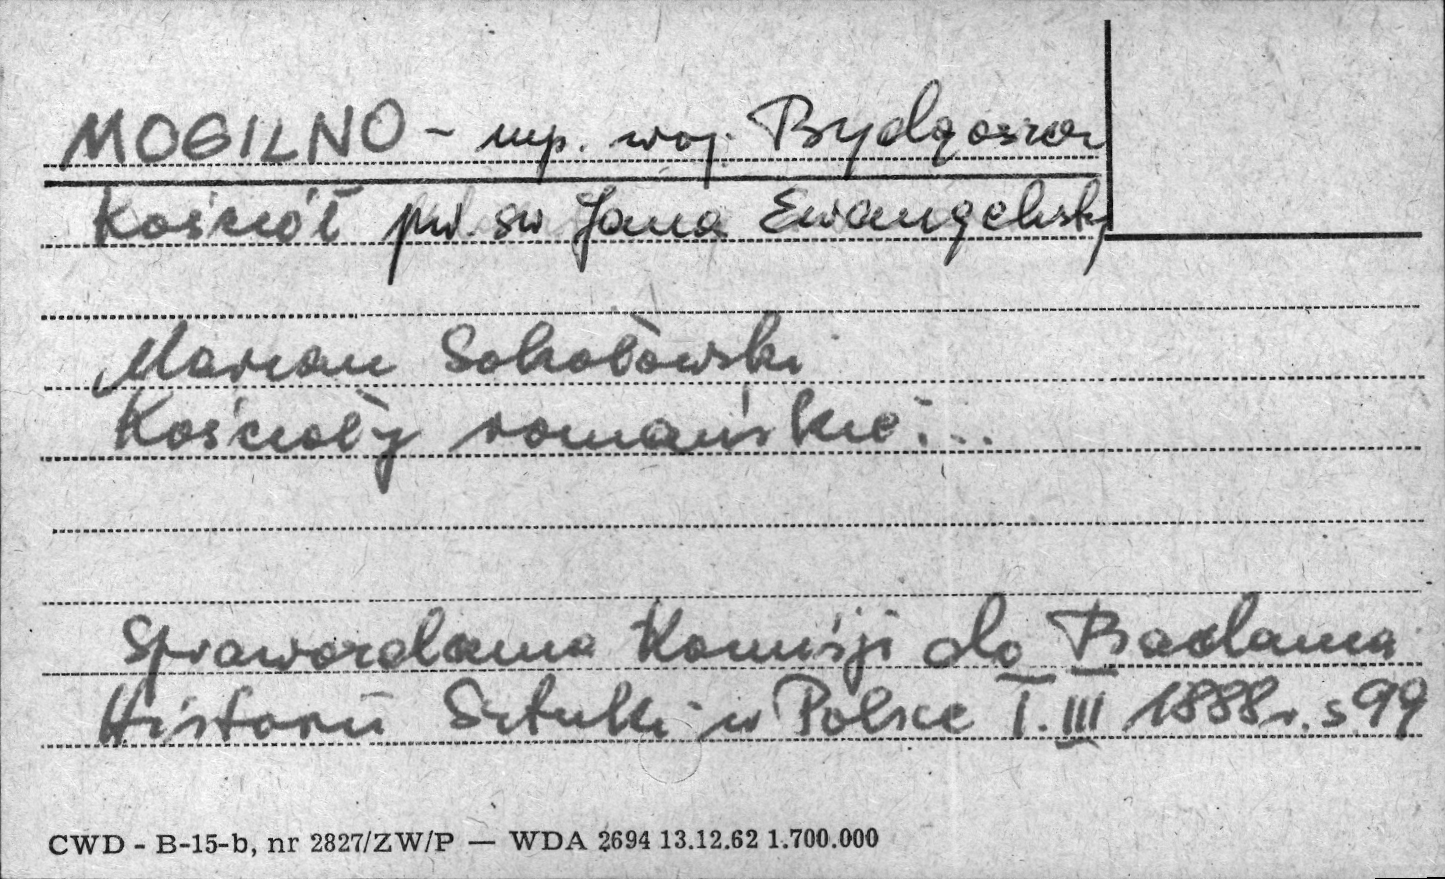 MOGILNO - mp. woj. Bydgoszcz
Kościół pw. sw Jana Ewangelisty
Marian Sokołowski
Kościoły romańskie...
Sprawozdania Komisji do Badania
Historii Sztuki w Polsce T. III 1888 r. s 99
CWD - B-15-b, nr 2827/ZW/P — WDA 2694 13.12.62 1.700.000